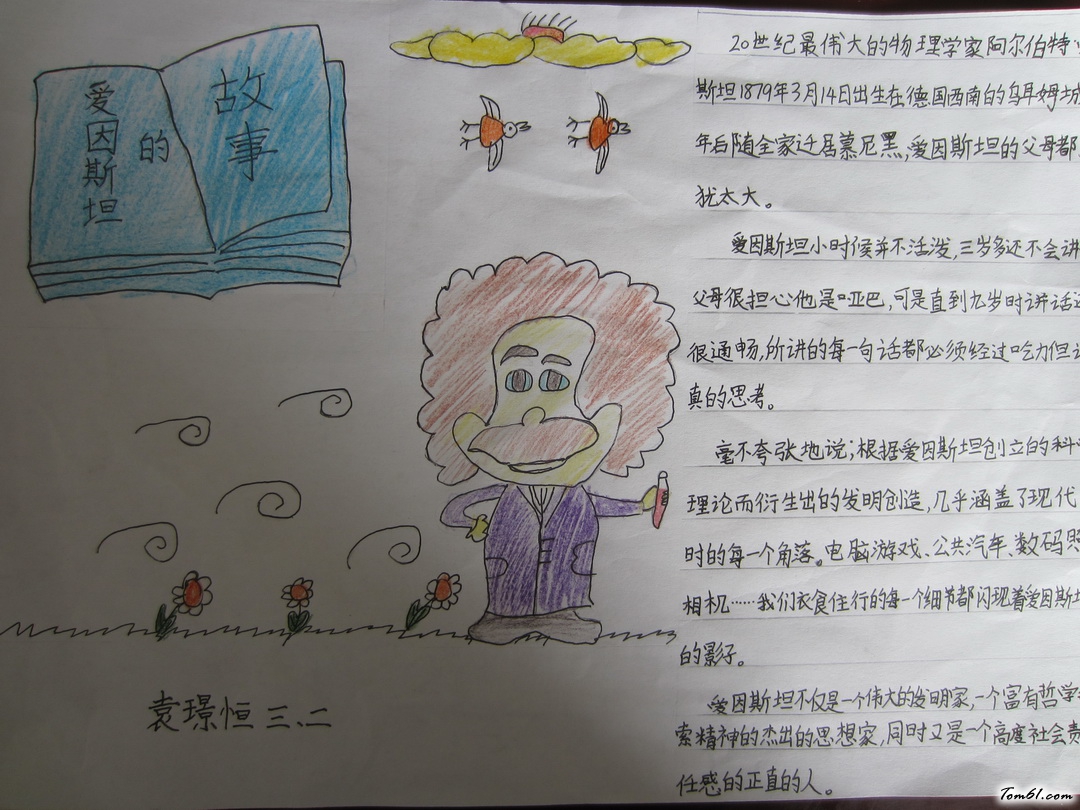 爱因斯坦
的
故事
20世纪最伟大的物理学家阿尔伯特·
斯坦1879年3月14日出生在德国西南的乌耳姆城
年后随全家迁居慕尼黑,爱因斯坦的父母都
犹太大。
爱因斯坦小时候并不活泼,三岁多还不会讲
父母很担心他是哑巴,可是直到九岁时讲话还
很通畅,所讲的每一句话都必须经过吃力但认
真的思考。
毫不夸张地说;根据爱因斯坦创立的科
理论而衍生出的发明创造,几乎涵盖了现代
时的每一个角落。电脑游戏、公共汽车、数码照
相机……我们衣食住行的每一个细节都闪现着爱因斯坦
的影子。
爱因斯坦不仅是一个伟大的发明家,一个富有哲学
索精神的杰出的思想家,同时又是一个高度社会责
任感的正直的人。
袁璟恒 三、二
Tom61.com